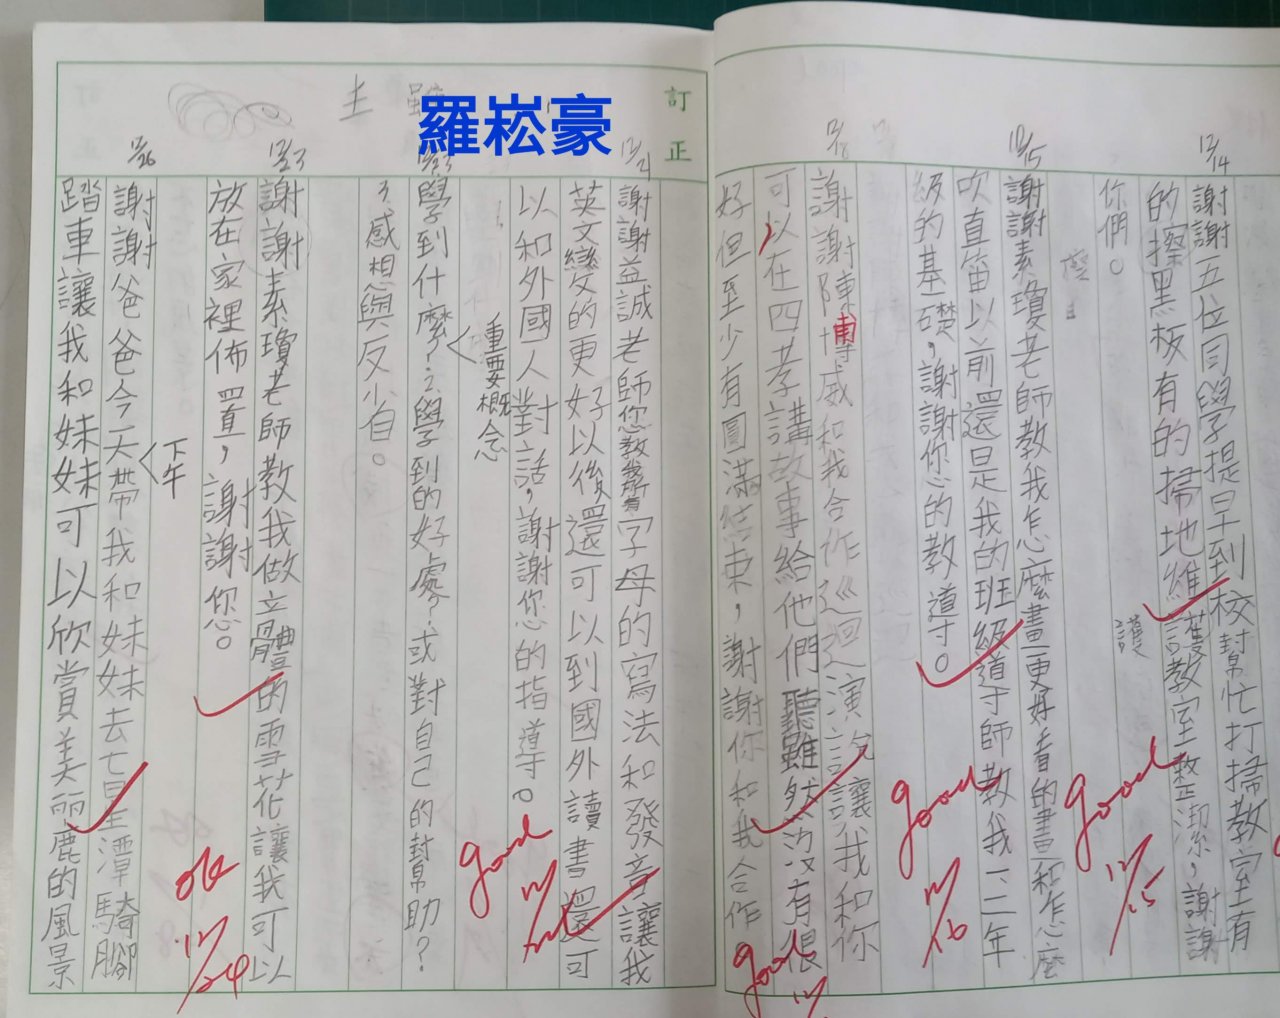 訂正
羅崧豪
12/14
謝謝五位同學提早到校幫忙打掃教室有
的擦黑板有的掃地維護教室整潔，謝謝
你們。
護
12/15
謝謝素瓊老師教我怎麼畫更好看的畫和怎麼
吹直笛以前還是我的班級導師教我一二年
級的基礎，謝謝您的教導。
12/18
謝謝陳博威和我合作巡迴演說讓我和你
可以在四孝講故事給他們聽雖然沒有很
好但至少有圓滿結束，謝謝你和我合作
12/21
謝謝益誠老師您教我所有字母的寫法和發音讓我
英文變的更好以後還可以到國外讀書還可
以和外國人對話，謝謝您的指導。
重要概念
12/23
學到什麼？2.學到的好處？或對自己的幫助？
3.感想與反省。
12/23
謝謝素瓊老師教我做立體的雪花讓我可以
放在家裡佈置，謝謝您。
12/26
謝謝爸爸今天帶我和妹妹去七星潭騎腳
下午
踏車讓我和妹妹可以欣賞美麗的風景
good
12/15
good
12/16
good
12/
good
12/
OK
12/24